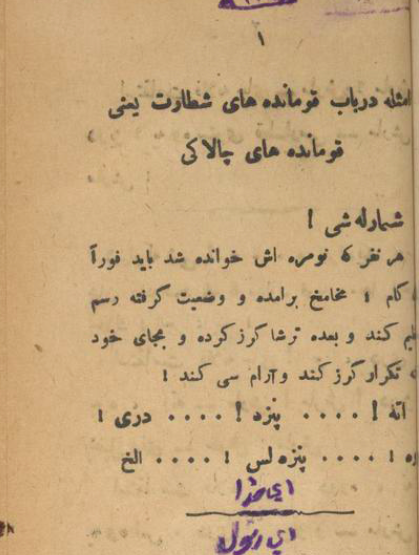 ۱
امثله درباب قومانده های شطارت یعنی
قومانده های چالاکی
شمارله شی !
هر نفر که نومره اش خوانده شد باید فوراً
گام ؛ مخامخ برامده و وضعیت گرفته رسم
کند و بعده ترشا کرز کرده و بجای خود
تکرار کرز کند و آرام سی کند !
اته ! .... پنزه ! .... دری !
.... پنزه لس ! .... الخ
ای خدا
ای رسول